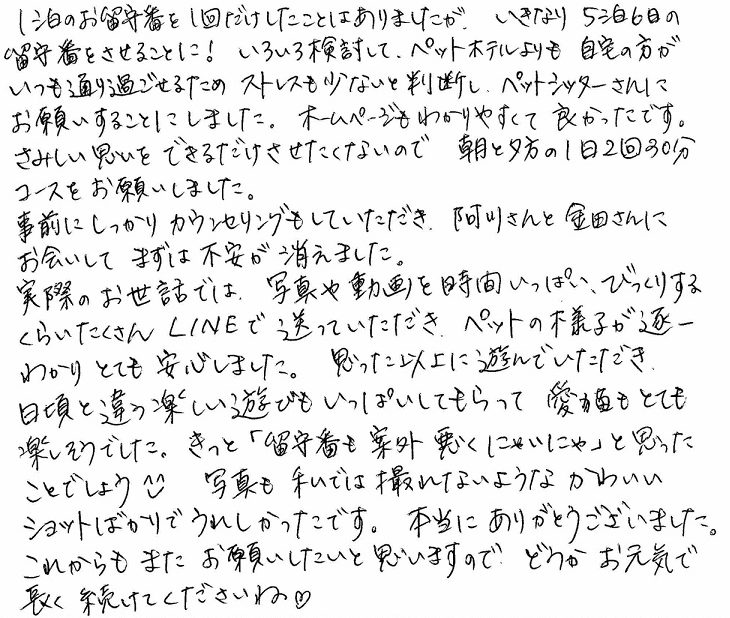 1泊のお留守番を1回だけしたことはありましたが、いきなり5泊6日の
留守番をさせることに! いろいろ検討して、ペットホテルよりも自宅の方が
いつも通り過ごせるためストレスも少ないと判断し、ペットシッターさんに
お願いすることにしました。ホームページもわかりやすくて良かったです。
さみしい思いをできるだけさせたくないので 朝と夕方の1日2回30分
コースをお願いしました。
事前にしっかりカウンセリングもしていただき、阿川さんと金田さんに
お会いして まずは不安が消えました。
実際のお世話では、写真や動画を時間いっぱい、びっくりする
くらいたくさんLINEで送っていただき、ペットの様子が逐一
わかりとても安心しました。 思った以上に遊んでいただき、
日頃と違う楽しい遊びもいっぱいしてもらって 愛猫もとても
楽しそうでした。きっと「留守番も案外悪くにゃいにゃ」と思った
ことでしょう 写真も私では撮れないようなかわいい
ショットばかりでうれしかったです。 本当にありがとうございました。
これからもまたお願いしたいと思いますので、どうかお元気で
長く続けてくださいね♡